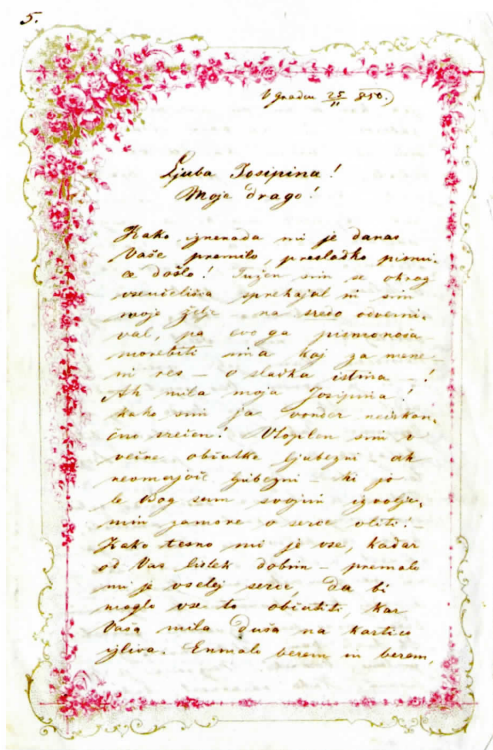 5.
V Gradcu 25/11 850.
Ljuba Josipina!
Moje drago!
Kako znenada mi je danas
Vaše premilo, presladko pismi-
ce došlo! Tužen sim se okrog
vseučelišča sprehajal ni sim
moje želje na sredo
val, pa evo ga pismonoša
morebiti ima kaj za mene –
ni res – o sladka istina –!
Ah mila moja Josipina!
kako sim ja vonder neizkan-
čno srečen! Vtoplen sim v
večne občutke ljubezni ah
neomejoče ljubezni – ki jo
le Bog sam svojim izvolje-
nim zamore v serce vliti! –
Kako tesno mi je vse, kadar
od Vas listek dobim – premalo
mi je vselej serce, da bi
moglo vse to občutiti, kar
Vaša mila duša na kartico
izliva. Enmalo berem in berem,